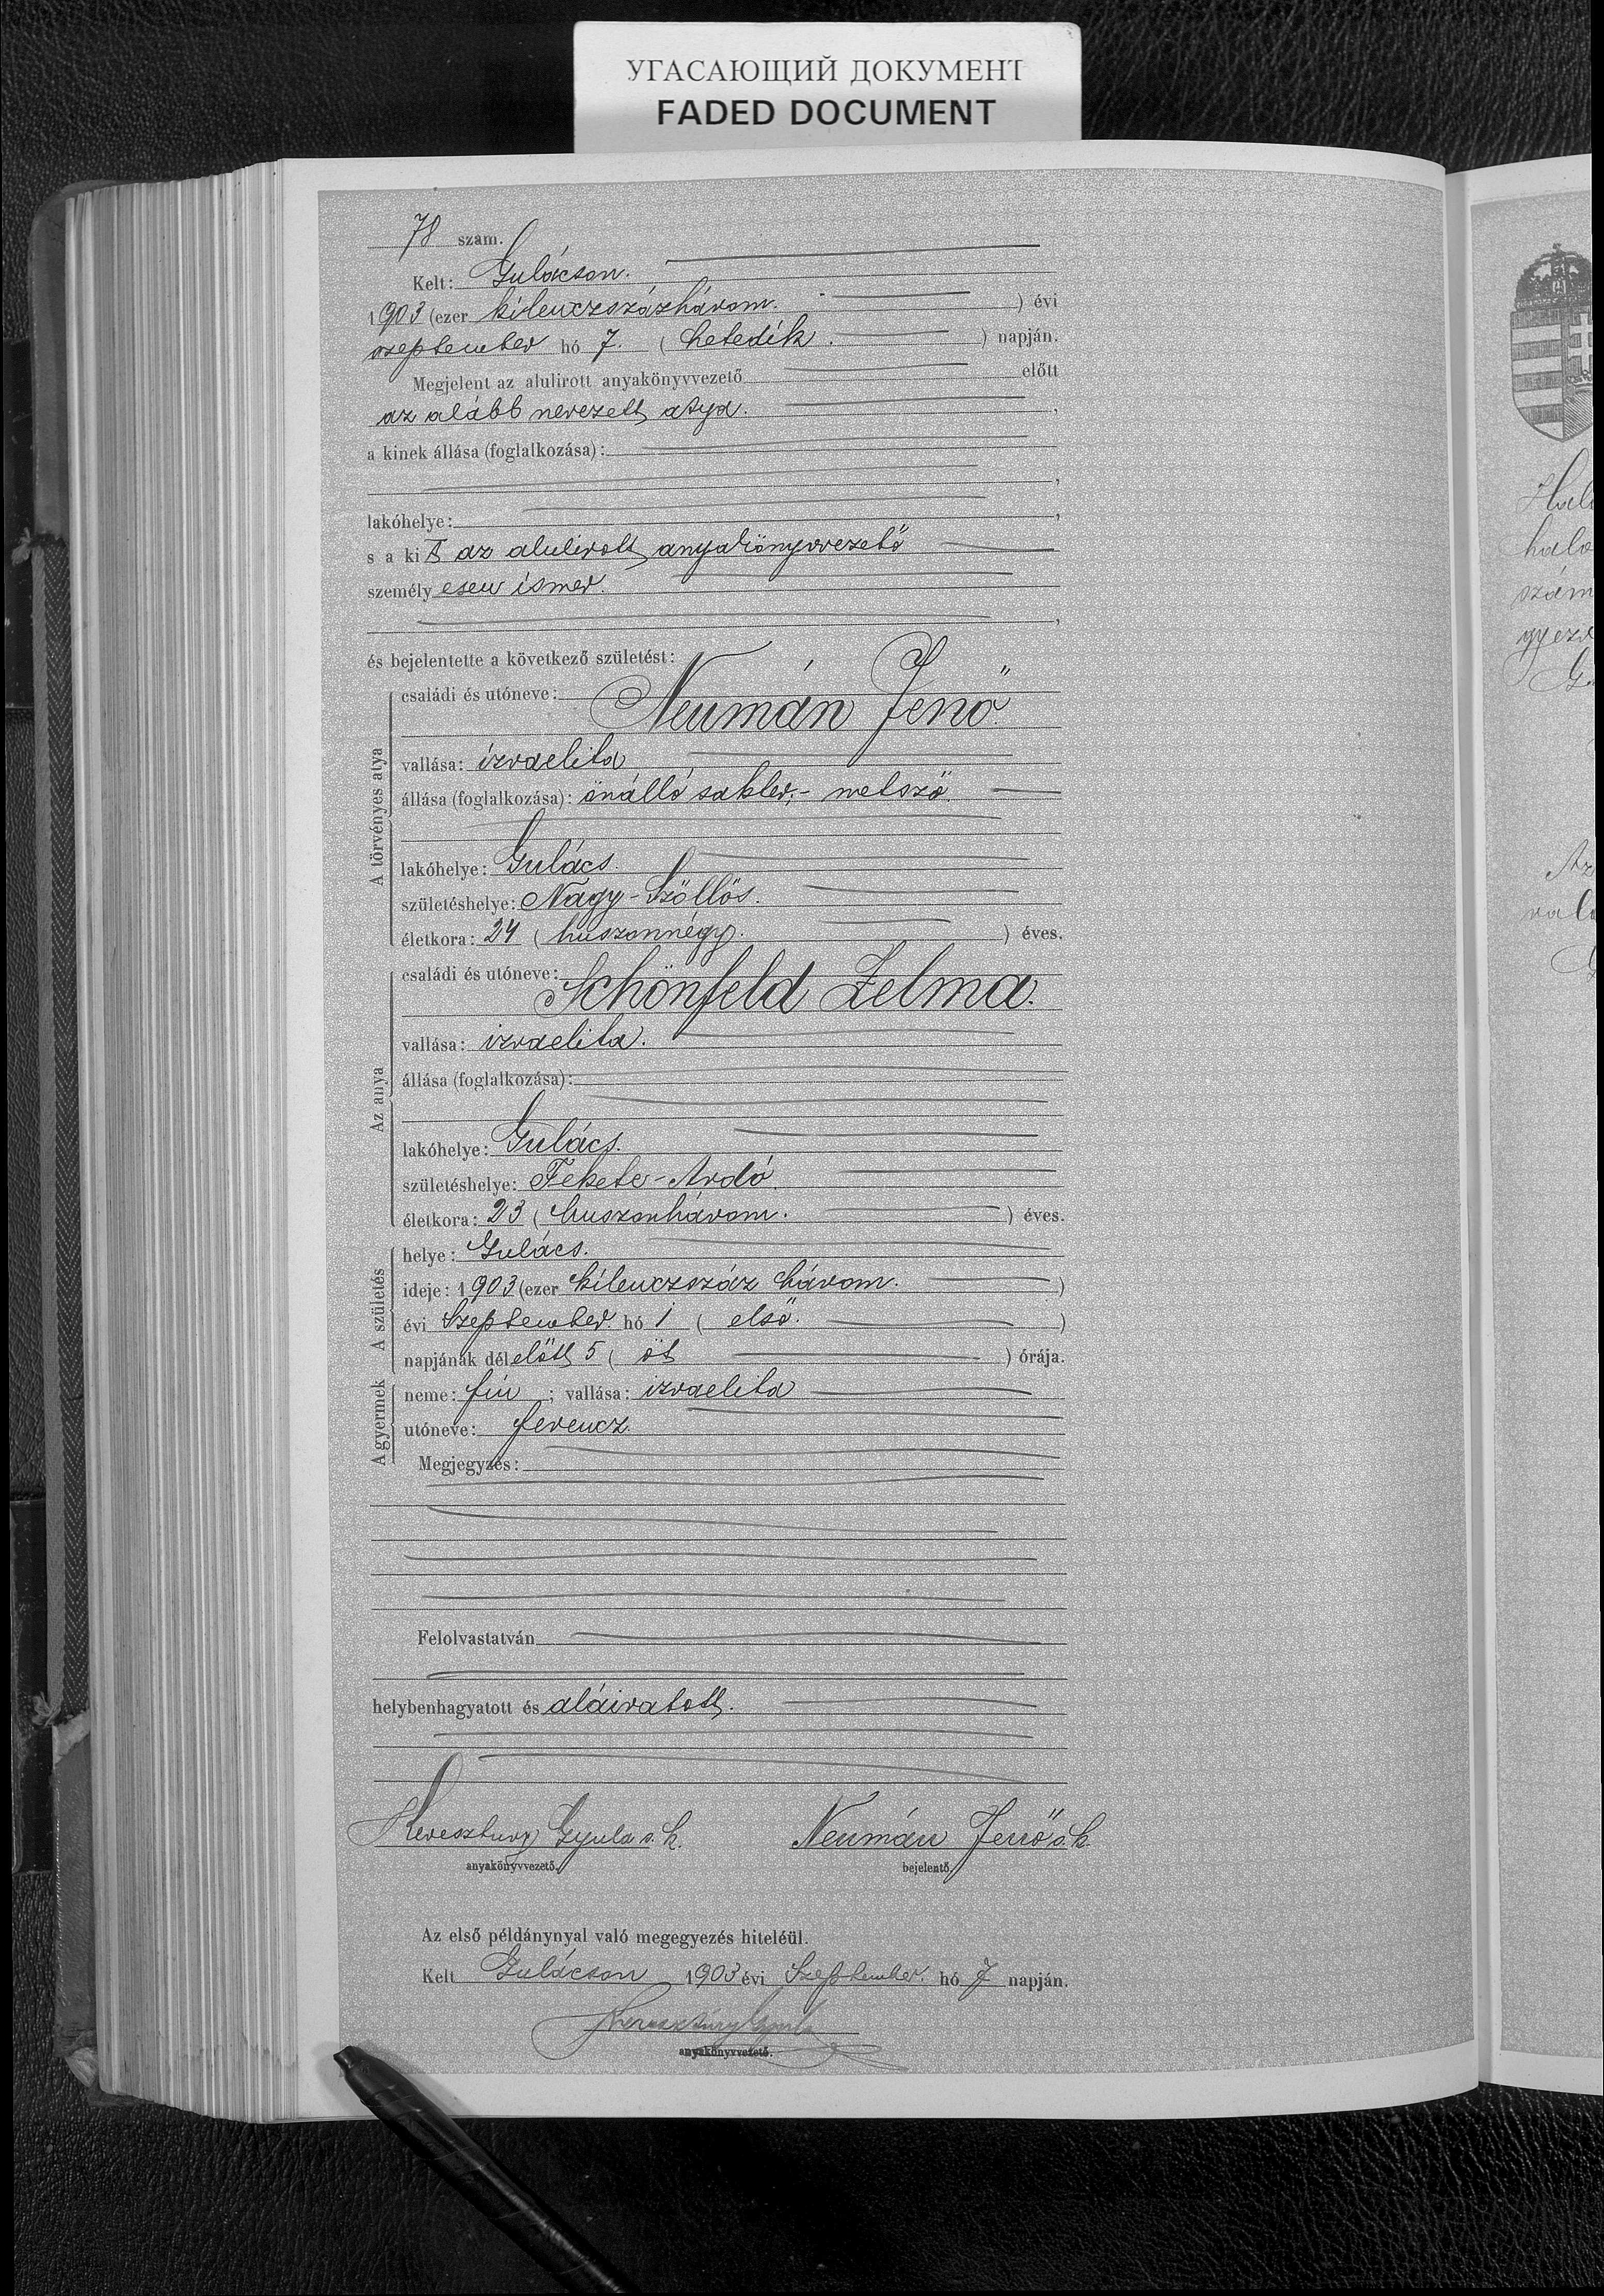 УГАСАЮЩИЙ ДОКУМЕНТ
FADED DOCUMENT
78 szám.
Kelt: Gulácson.
1903 (ezer kilenczszázhárom. ) évi
szeptember hó 7. ( hetedik. ) napján.
Megjelent az alulirott anyakönyvvezető előtt
az alább nevezett atya. ,
a kinek állása (foglalkozása):
,
lakóhelye: ,
s a kit az alulirott anyakönyvvezető
személyesen ismer.
,
és bejelentette a következő születést:
A törvényes atya
családi és utóneve: Neumán Jenő.
vallása: izraelita
állása (foglalkozása): önálló sakter,- metsző.
lakóhelye: Gulács.
születéshelye: Nagy-Szöllös.
életkora: 24 ( huszonnégy. ) éves.
Az anya
családi és utóneve: Schönfeld Zelma.
vallása: izraelita.
állása (foglalkozása):
lakóhelye: Gulács.
születéshelye: Fekete-Ardó.
életkora: 23 ( huszonhárom. ) éves.
A születés
helye: Gulács.
ideje: 1903 (ezer kilenczszáz három. )
évi Szeptember. hó 1 ( első. )
napjának délelőtt 5 ( öt ) órája.
A gyermek
neme: fiu ; vallása: izraelita
utóneve: Ferencz.
Megjegyzés:
Felolvastatván
helybenhagyatott és aláiratott.
Keresztury Gyula s. k. Neumán Jenő s. k.
anyakönyvvezető. bejelentő.
Az első példánynyal való megegyezés hiteléül.
Kelt Gulácson 1903 évi Szeptember. hó 7 napján.
Keresztury Gyula
anyakönyvvezető.